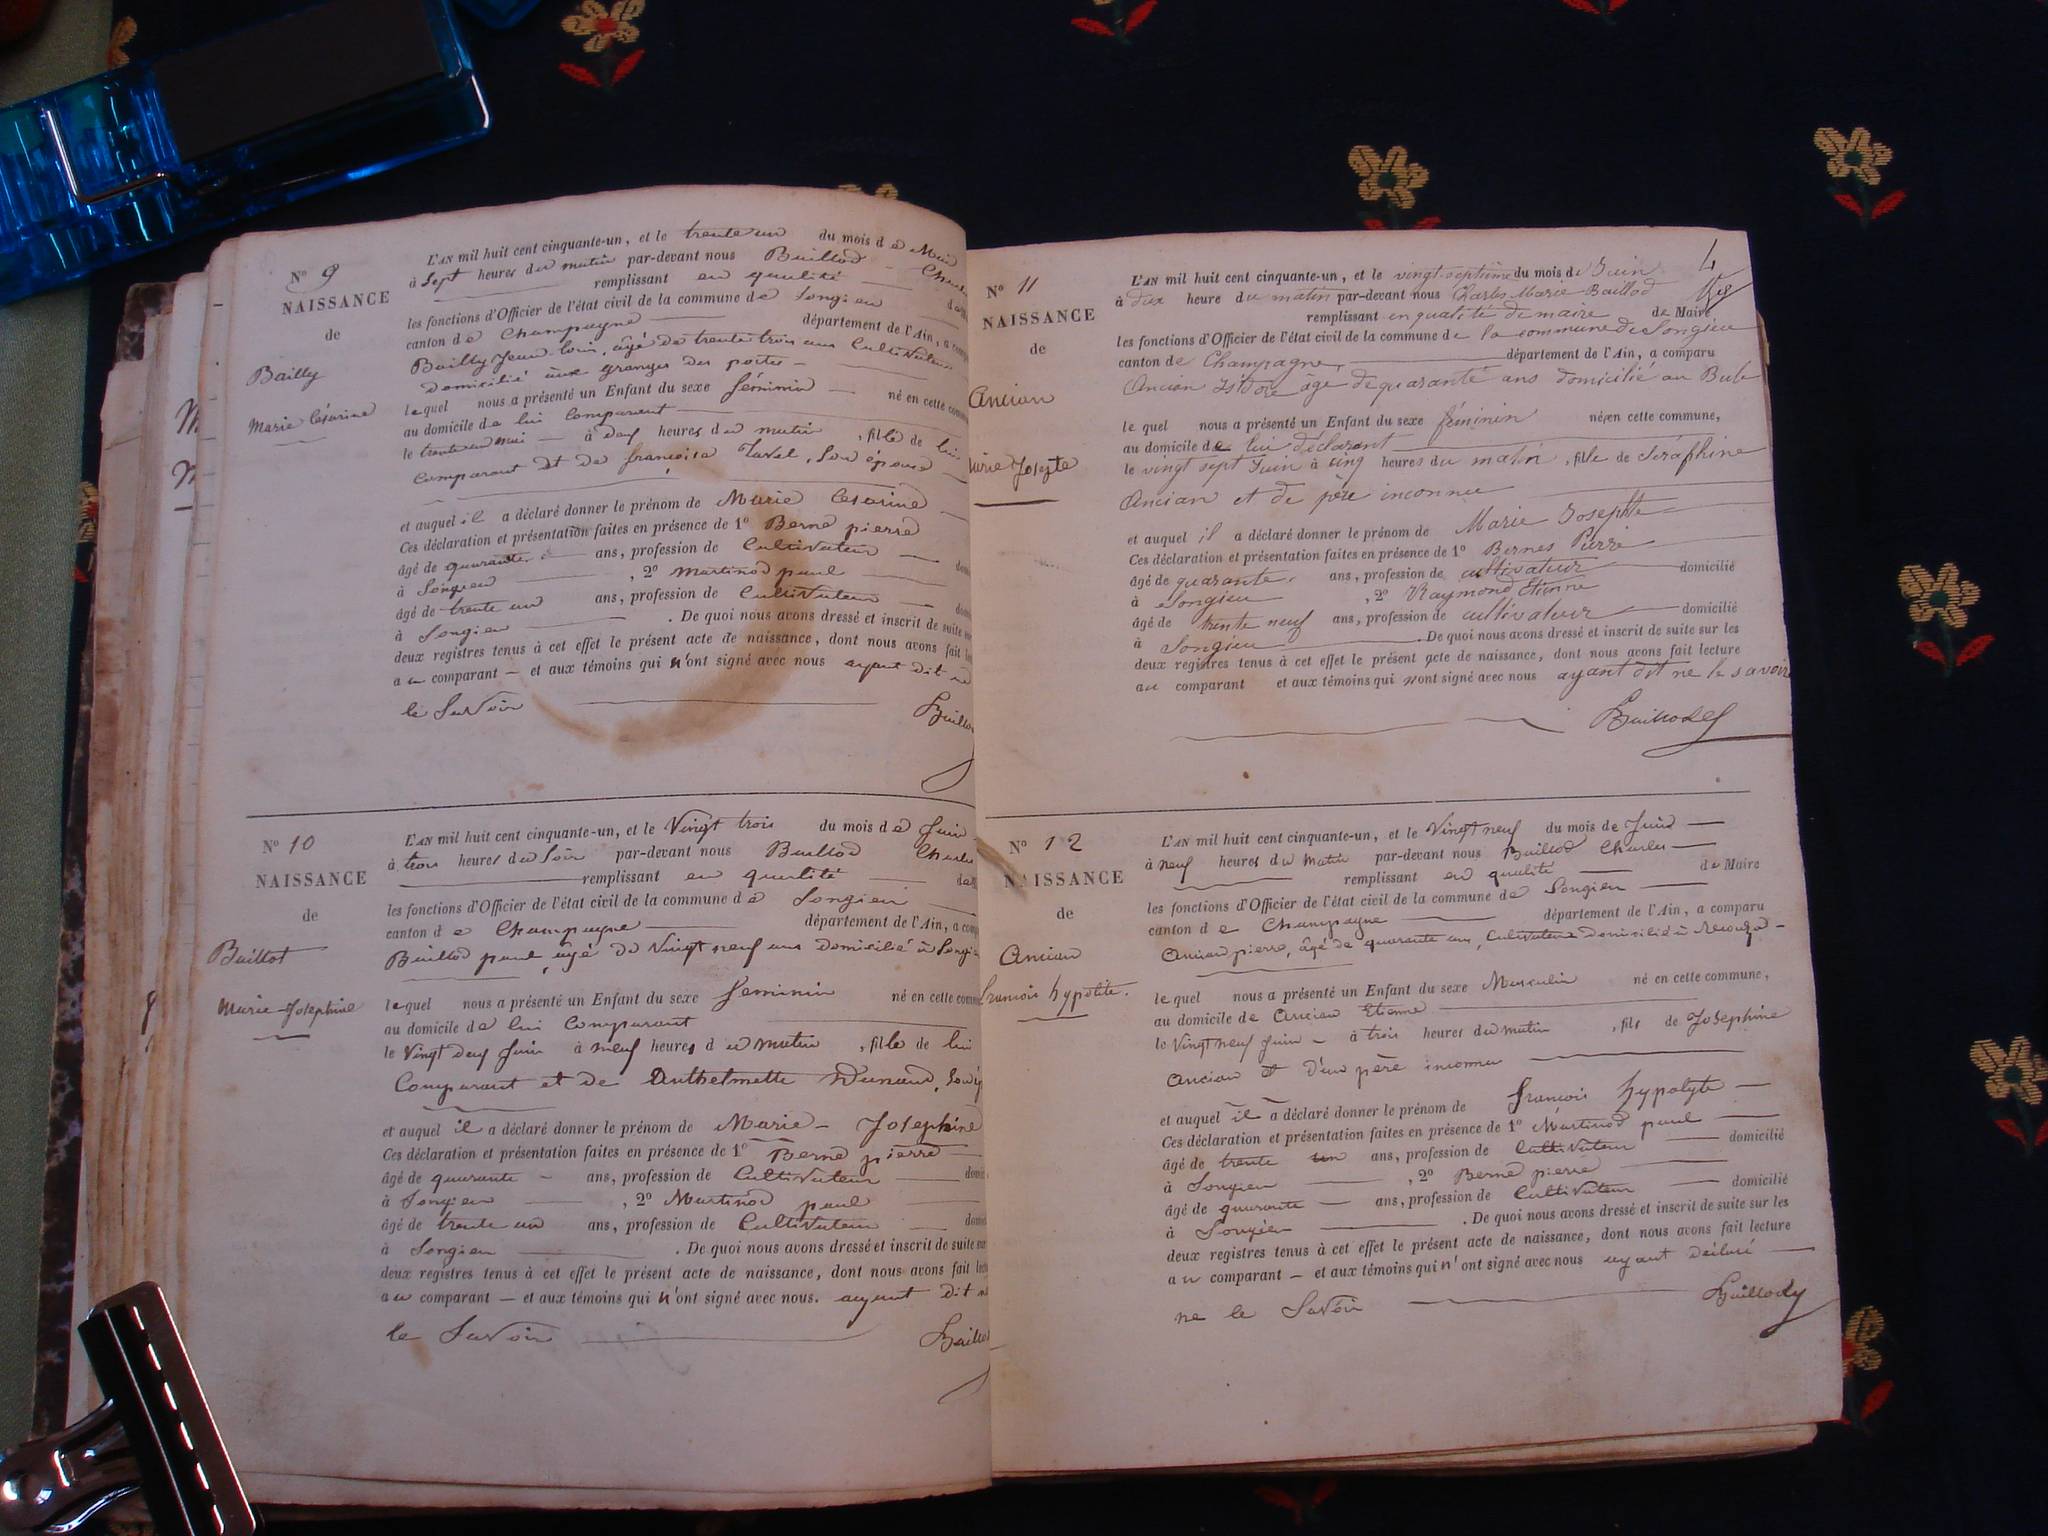 N° 9
NAISSANCE
de
Bailly
Marie Césarine
L'AN mil huit cent cinquante-un, et le trente un du mois de Mai
à Sept heures du matin par-devant nous Baillod Charles
remplissant en qualité
les fonctions d'Officier de l'état civil de la commune de Songieu
canton de Champagne département de l'Ain, a comp
Bailly Jean Loui, âgé de trente trois ans Cultivateur
domicilié aux granges des portes
lequel nous a présenté un Enfant du sexe féminin né en cette comm
au domicile de lui Comparant
le trente un mai à deux heures du matin, fille de lui
Comparant et de françoise Tavel, Son épouse
et auquel il a déclaré donner le prénom de Marie Cesarine
Ces déclaration et présentation faites en présence de 1° Berne pierre
âgé de quarante ans, profession de Cultivateur dom
à Songieu, 2° Martinod paul
âgé de trente un ans, profession de Cultivateur dom
à Songieu. De quoi nous avons dressé et inscrit de suite sur
deux registres tenus à cet effet le présent acte de naissance, dont nous avons fait lec
au comparant – et aux témoins qui n'ont signé avec nous ayant dit ne
le Savoir
Baillod
N° 10
NAISSANCE
de
Baillot
Marie-Josephine
L'AN mil huit cent cinquante-un, et le Vingt trois du mois de Juin
à trois heures du Soir par-devant nous Baillod Charles
remplissant en qualité de
les fonctions d'Officier de l'état civil de la commune de Songieu
canton de Champagne département de l'Ain, a comp
Baillod paul, âgé de Vingt neuf ans domicilié à Songieu
lequel nous a présenté un Enfant du sexe Feminin né en cette comm
au domicile de lui Comparant
le Vingt deux Juin à neuf heures du matin, fille de lui
Comparant et de Anthelmette
et auquel il a déclaré donner le prénom de Marie – Josephine
Ces déclaration et présentation faites en présence de 1° Berne pierre
âgé de quarante – ans, profession de Cultivateur domi
à Songieu, 2° Martinod paul
âgé de trente un ans, profession de Cultivateur domi
à Songieu. De quoi nous avons dressé et inscrit de suite sur
deux registres tenus à cet effet le présent acte de naissance, dont nous avons fait lect
au comparant – et aux témoins qui n'ont signé avec nous. ayant dit ne
le Savoir
Baillod
4
N° 11
NAISSANCE
de
Ancian
Marie Josepte
L'AN mil huit cent cinquante-un, et le vingt-septième du mois de Juin
à dix heure du matin par-devant nous Charles Marie Baillod
remplissant en qualité de maire de Maire
les fonctions d'Officier de l'état civil de la commune de la commune de Songieu
canton de Champagne, département de l'Ain, a comparu
Ancian Isidore âgé de quarante ans domicilié au Bub
lequel nous a présenté un Enfant du sexe féminin née en cette commune,
au domicile de lui déclarant
le vingt sept Juin à cinq heures du matin, fille de Séraphine
Ancian et de père inconnu
et auquel il a déclaré donner le prénom de Marie Josephte
Ces déclaration et présentation faites en présence de 1° Bernes Pierre
âgé de quarante ans, profession de cultivateur domicilié
à Songieu, 2° Raymond Etienne
âgé de trente neuf ans, profession de cultivateur domicilié
à Songieu. De quoi nous avons dressé et inscrit de suite sur les
deux registres tenus à cet effet le présent acte de naissance, dont nous avons fait lecture
au comparant et aux témoins qui n'ont signé avec nous ayant dit ne le savoir
Baillod
N° 12
NAISSANCE
de
Ancian
francois hypolite.
L'AN mil huit cent cinquante-un, et le Vingt neuf du mois de Juin
à neuf heures du matin par-devant nous Baillod Charles
remplissant en qualité de Maire
les fonctions d'Officier de l'état civil de la commune de Songieu
canton de Champagne département de l'Ain, a comparu
Ancian pierre, âgé de quarante ans, Cultivateur domicilié à
lequel nous a présenté un Enfant du sexe Masculin né en cette commune,
au domicile de Ancian Etienne
le Vingt neuf Juin – à trois heures du matin, fils de Josephine
Ancian et D'un père inconnu
et auquel il a déclaré donner le prénom de francois hypolyte
Ces déclaration et présentation faites en présence de 1° Martinod paul
âgé de trente un ans, profession de Cultivateur domicilié
à Songieu, 2° Berne pierre
âgé de quarante – ans, profession de Cultivateur domicilié
à Songieu. De quoi nous avons dressé et inscrit de suite sur les
deux registres tenus à cet effet le présent acte de naissance, dont nous avons fait lecture
au comparant – et aux témoins qui n'ont signé avec nous ayant déclaré
ne le Savoir
Baillod